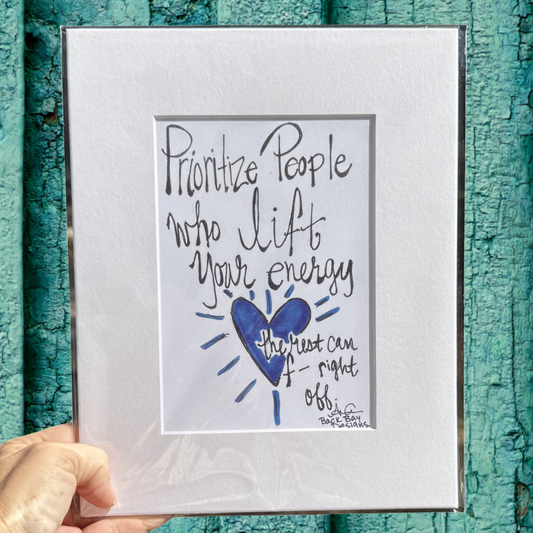 Prioritize People
who lift
your energy
the rest can
f- right
off.
Back Bay
Designs